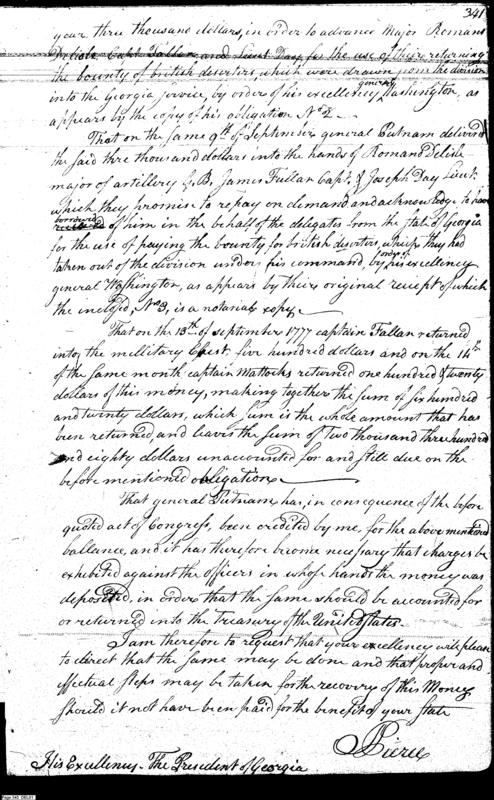 341
your three thousand dollars, in order to advance Major Romans
Delisle Capt Fallan and Lieut Day for the use of their returning
the bounty of british deserters which were drawn from the division
into the Georgia service, by order of his excellency general Washington, as
appears by the copy of his obligation No 2
That on the same 9th of September general Putnam deliverd
the said thre thousand dollars into the hands of Romans Delisle
major of artillery & B. James Fullan Capt. & Joseph Day Lieut.
which they promise to repay on demand and acknowledge to have
borrowed of him in the behalf of the delegates from the state of Georgia
for the use of paying the bounty for british deserters, which they had
taken out of the division under his command, by order of his excellency
general Washington, as appears by their original receipt of which
the inclosed, No 3, is a notarial copy
That on the 13th of september 1777 captain Fallan returned
into the millitary Chest, five hundred dollars and on the 14th
of the same month captain Mattocks returned one hundred & twenty
dollars of this money, making together the sum of six hundred
and twenty dollars, which sum is the whole amount that has
been returned, and leaves the sum of two thousand three hundred
and eighty dollars unaccounted for and still due on the
before mentioned obligation
That general Putnam has, in consequence of the before
quoted act of Congress, been credited by me, for the above mentioned
ballance, and it has therefore become necessary that charges be
exhibited against the officers in whose hands the money was
deposited, in order that the same should be accounted for
or returned into the Treasury of the United States
I am therefore to request that your excellency will please
to direct that the same may be done and that proper and
effectual steps may be taken for the recovery of this Money
should it not have been paid for the benefit of your state
Pierce
His Excellency The President of Georgia